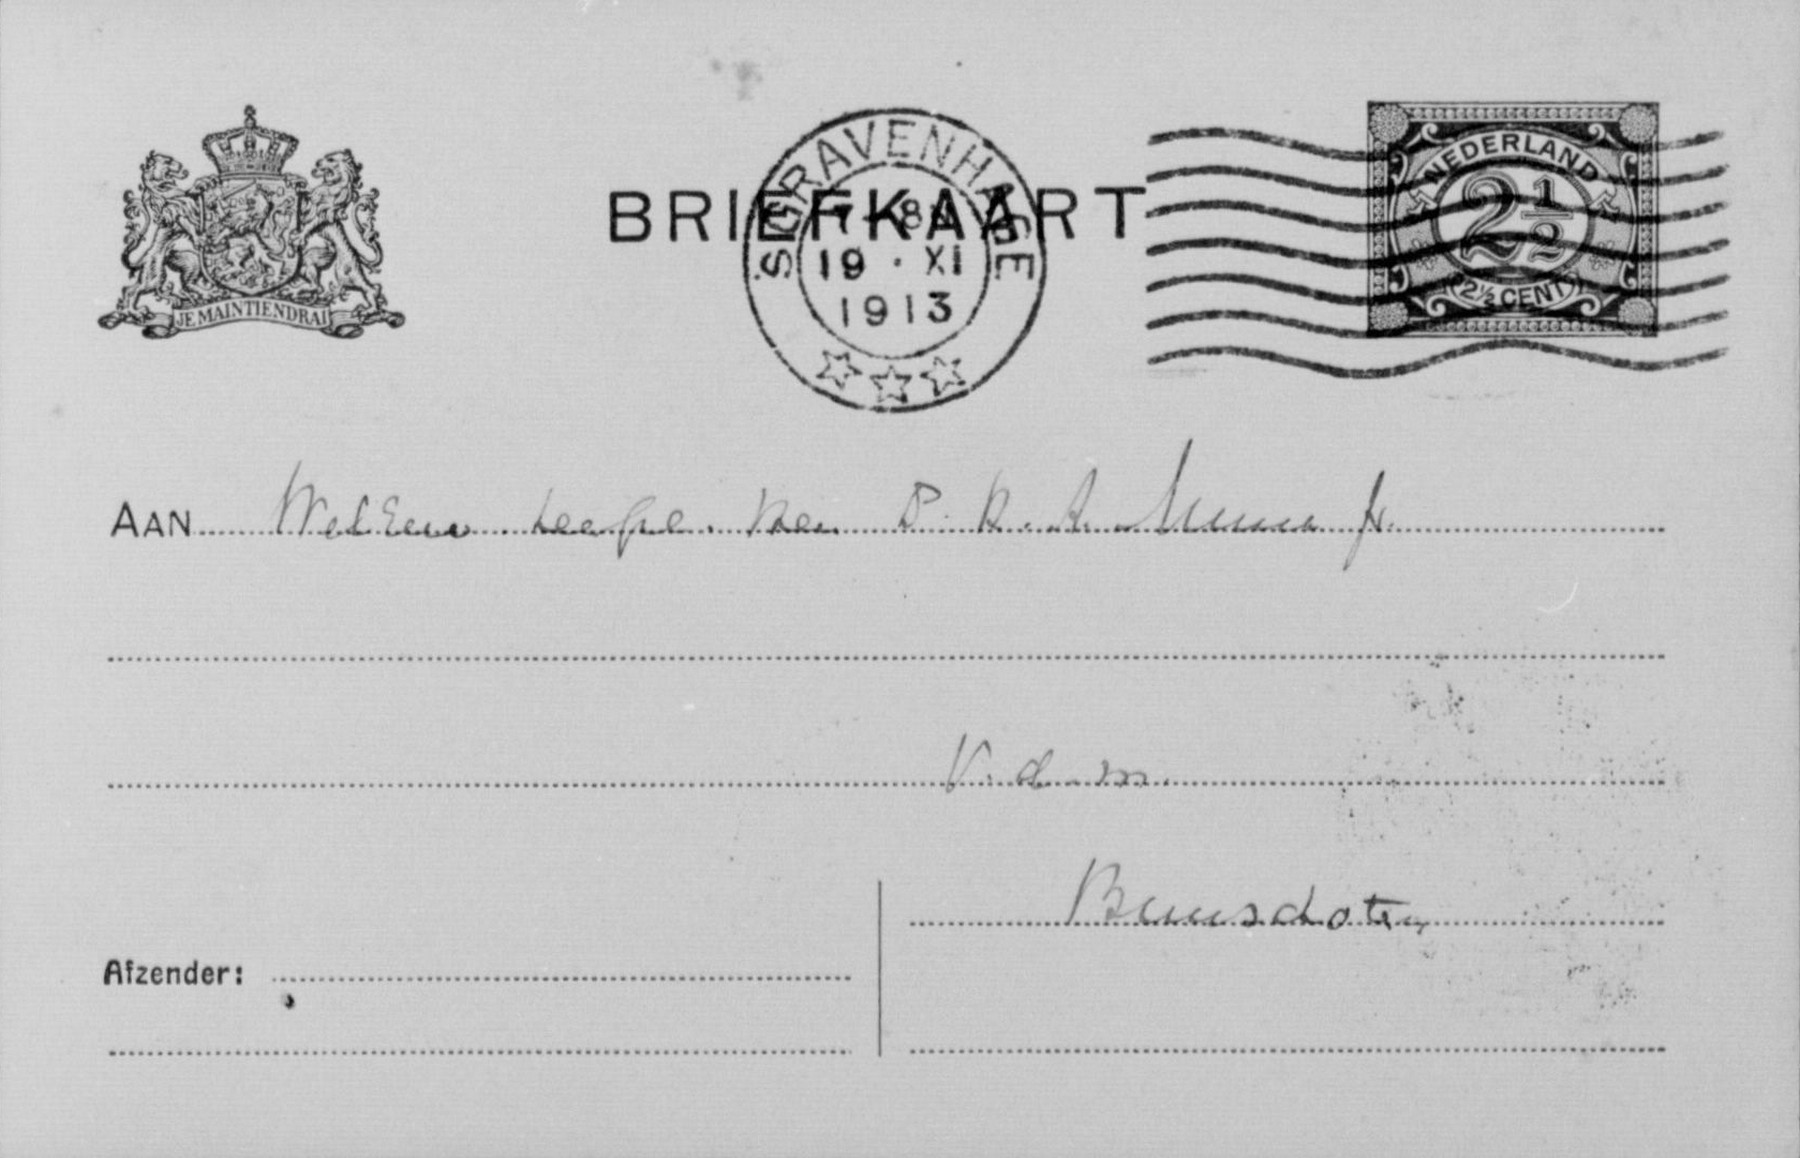 JE MAINTIENDRAI
BRIEFKAART
'SGRAVENHAGE
7-8
19 · XI
1913
NEDERLAND
2 1/2
2½ CENT
AAN WelEerw
V. d. m.
Bunschoten
Afzender: